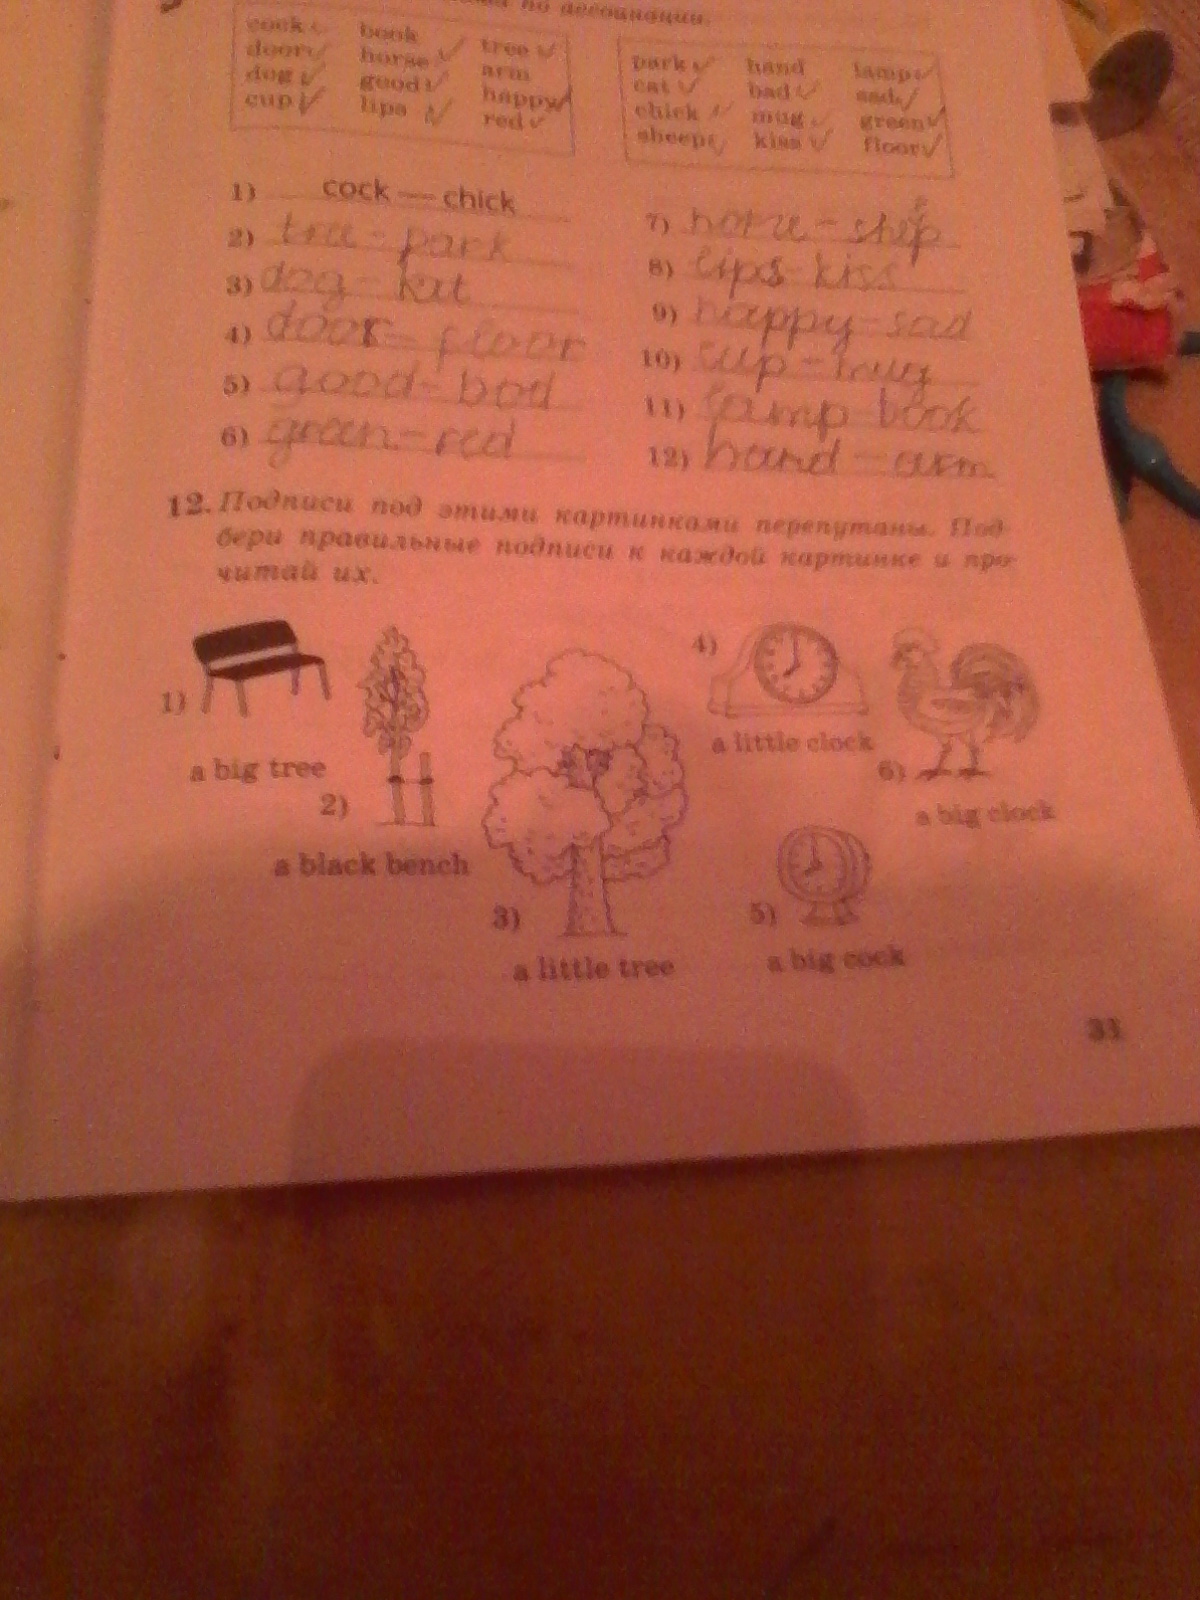 по ассоциации.
cock book tree
door horse arm
dog good happy
cup lips red
park hand lamp
cat bad sad
chick mug green
sheep kiss floor
1) cock — chick
2) tree - park
3) dog - kat
4) door - floor
5) good - bad
6) green - red
7) horse - shep
8) lips - kiss
9) happy - sad
10) cup - mug
11) lamp - book
12) hand - arm
12. Подписи под этими картинками перепутаны. Под-
бери правильные подписи к каждой картинке и про-
читай их.
1)
a big tree
2)
a black bench
3)
a little tree
4)
a little clock
5)
a big cock
6)
a big clock
31